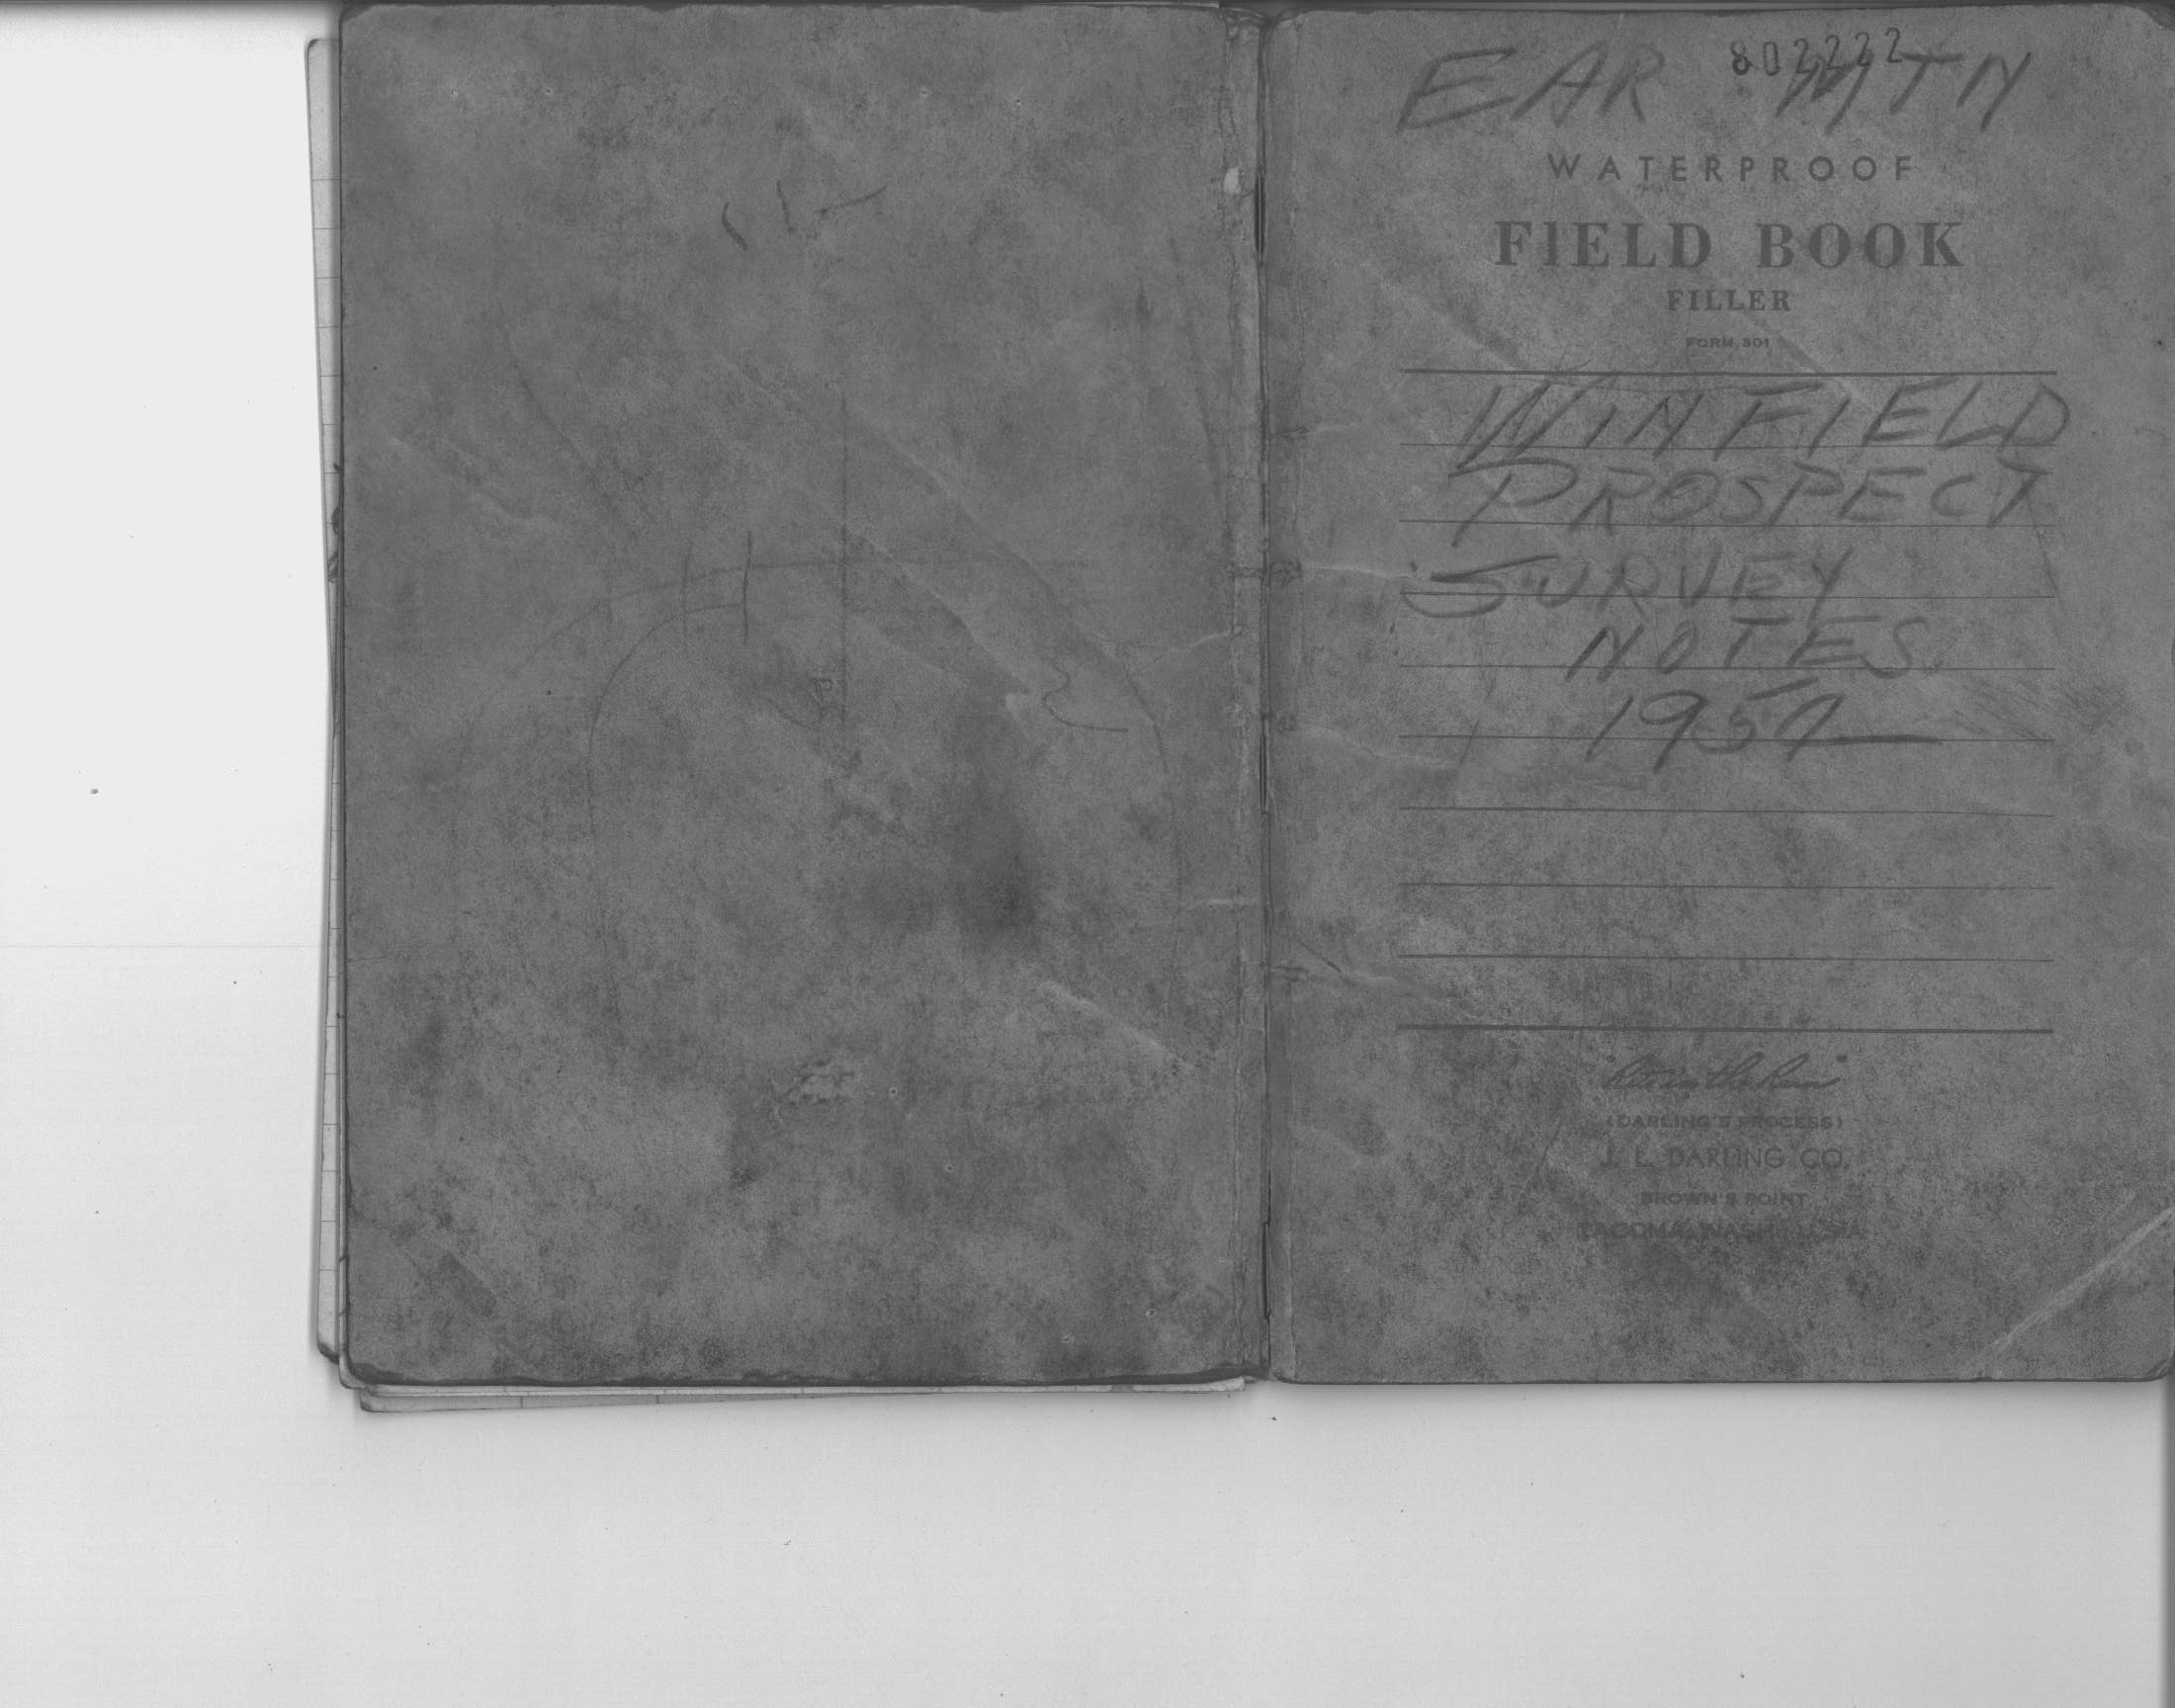 802222
EAR MTN
WATERPROOF
FIELD BOOK
FILLER
FORM 301
WINFIELD
PROSPECT
SURVEY
NOTES
1954
"Rite in the Rain"
(DARLING'S PROCESS)
J. L. DARLING CO.
BROWN'S POINT
TACOMA, WASH., U.S.A.